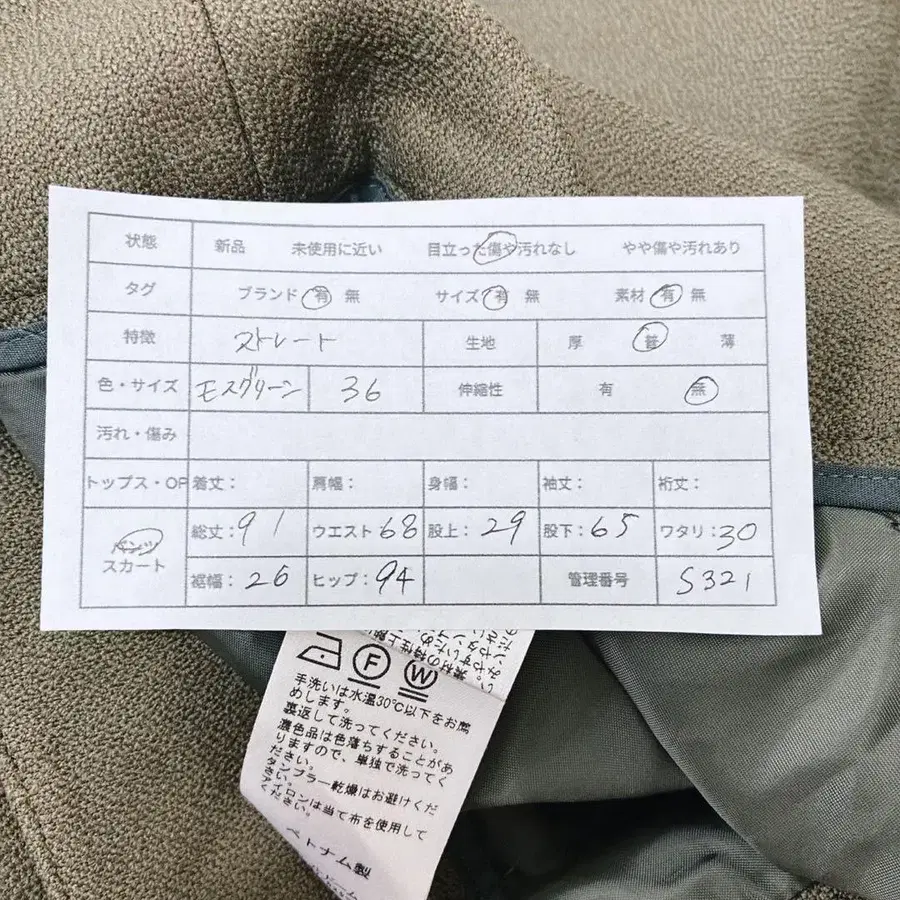 状態 新品 未使用に近い 目立った傷や汚れなし やや傷や汚れあり
タグ ブランド 有 無 サイズ 有 無 素材 有 無
特徴 ストレート 生地 厚 普 薄
色・サイズ モスグリーン 36 伸縮性 有 無
汚れ・傷み
トップス・OP 着丈: 肩幅: 身幅: 袖丈: 裄丈:
パンツ 総丈:91 ウエスト68 股上:29 股下:65 ワタリ:30
スカート 裾幅:26 ヒップ:94 管理番号 S321
F W
手洗いは水温30℃以下をお薦
めします。
裏返して洗ってください。
濃色品は色落ちすることがあ
りますので、単独で洗ってく
ださい。
タンブラー乾燥はお避けくだ
さい。
アイロンは当て布を使用して
ください。
ベトナム製